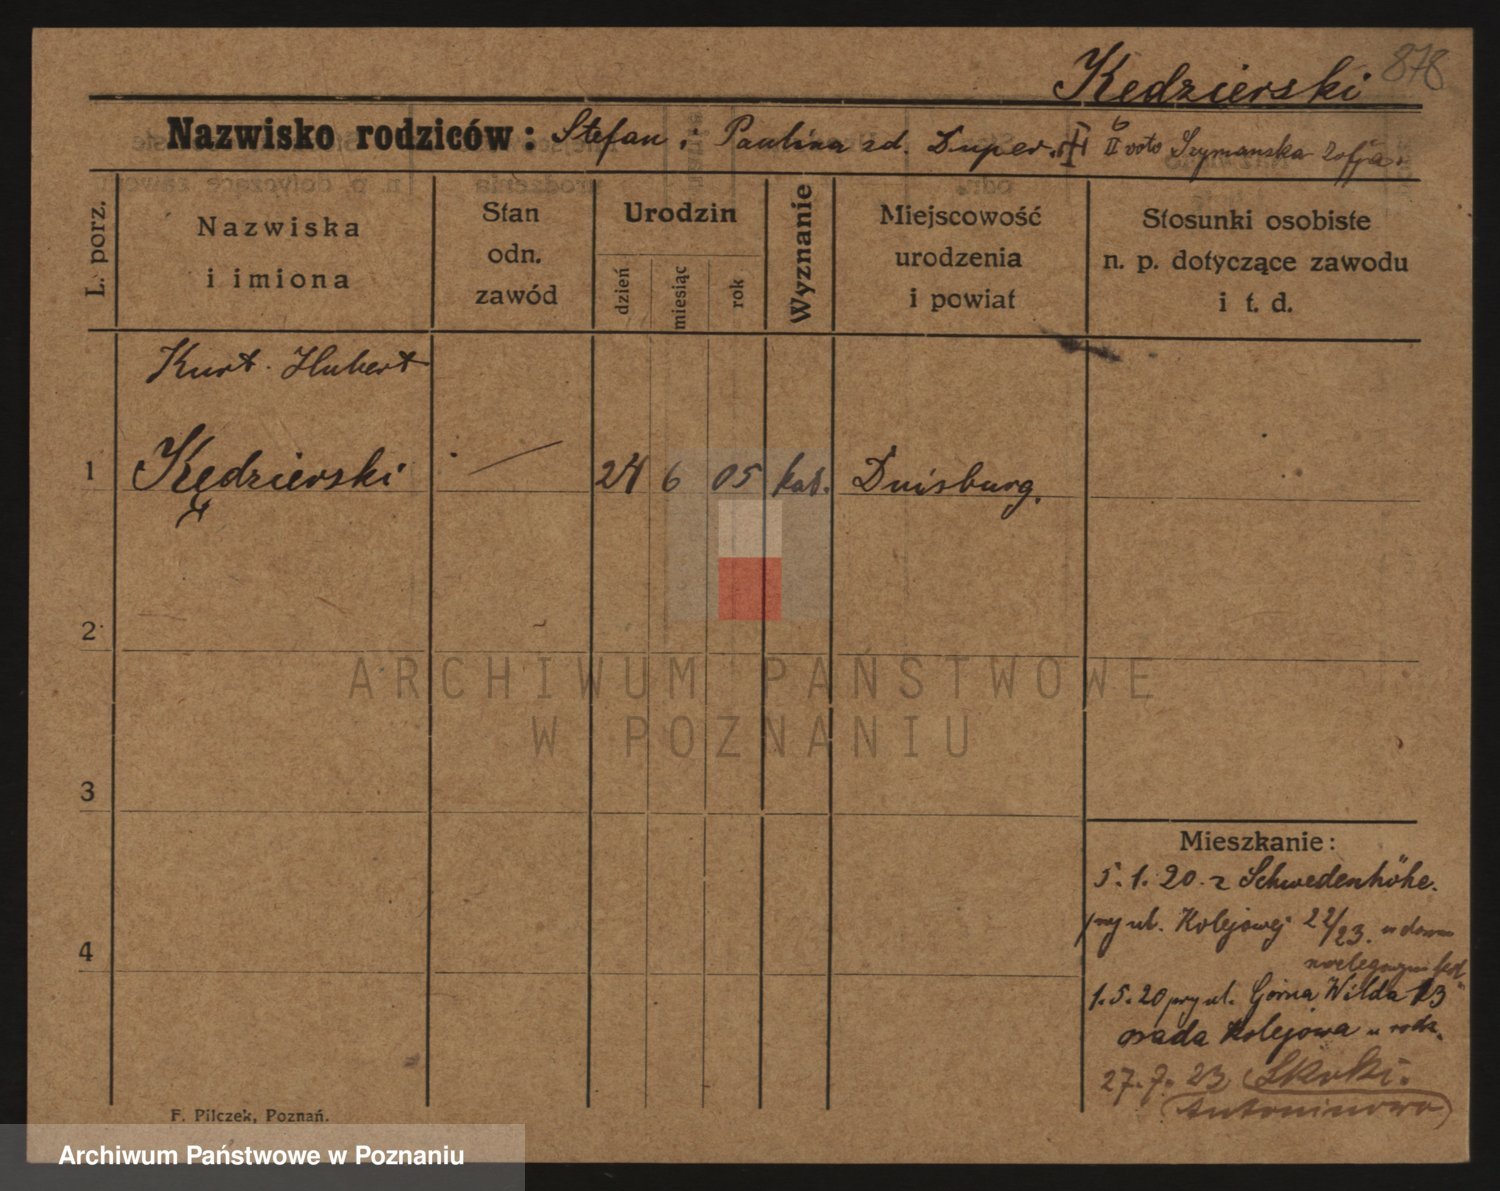 Kędzierski 878
Nazwisko rodziców: Stefan i Paulina zd. Duper. II voto Szymanska Zofja.
L. porz.
Nazwiska
i imiona
Stan
odn.
zawód
Urodzin
dzień
miesiąc
rok
Wyznanie
Miejscowość
urodzenia
i powiat
Stosunki osobiste
n. p. dotyczące zawodu
i t. d.
Kurt Hubert
1 Kędzierski 24 6 05 kat. Duisburg.
2
ARCHIWUM PAŃSTWOWE
W POZNANIU
3
Mieszkanie:
5.1.20 z Schwedenhöhe.
przy ul. Kolejowej 22/23.
4
1.5.20 przy ul. Górna Wilda
osada Kolejowa u rodz.
27.7.23 Skoki.
Antoninowo
F. Pilczek, Poznań.
Archiwum Państwowe w Poznaniu